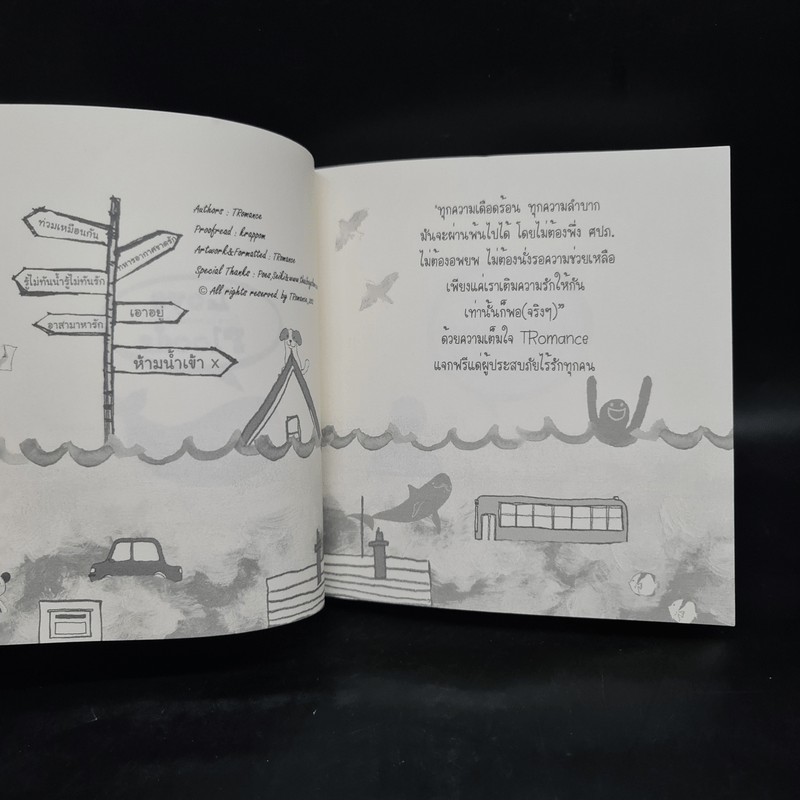 ท่วมเหมือนกัน
ทหารอากาศขาดรัก
รู้ไม่ทันน้ำรู้ไม่ทันรัก
เอาอยู่
อาสามาหารัก
ห้ามน้ำเข้า x
Authors : TRomance
Proofread : krappom
Artwork&Formatted : TRomance
Special Thanks :
© All rights reserved by TRomance,
"ทุกความเดือดร้อน ทุกความลำบาก
มันจะผ่านพ้นไปได้ โดยไม่ต้องพึ่ง ศปภ.
ไม่ต้องอพยพ ไม่ต้องนั่งรอความช่วยเหลือ
เพียงแค่เราเติมความรักให้กัน
เท่านั้นก็พอ(จริงๆ)"
ด้วยความเต็มใจ TRomance
แจกฟรีแด่ผู้ประสบภัยไร้รักทุกคน